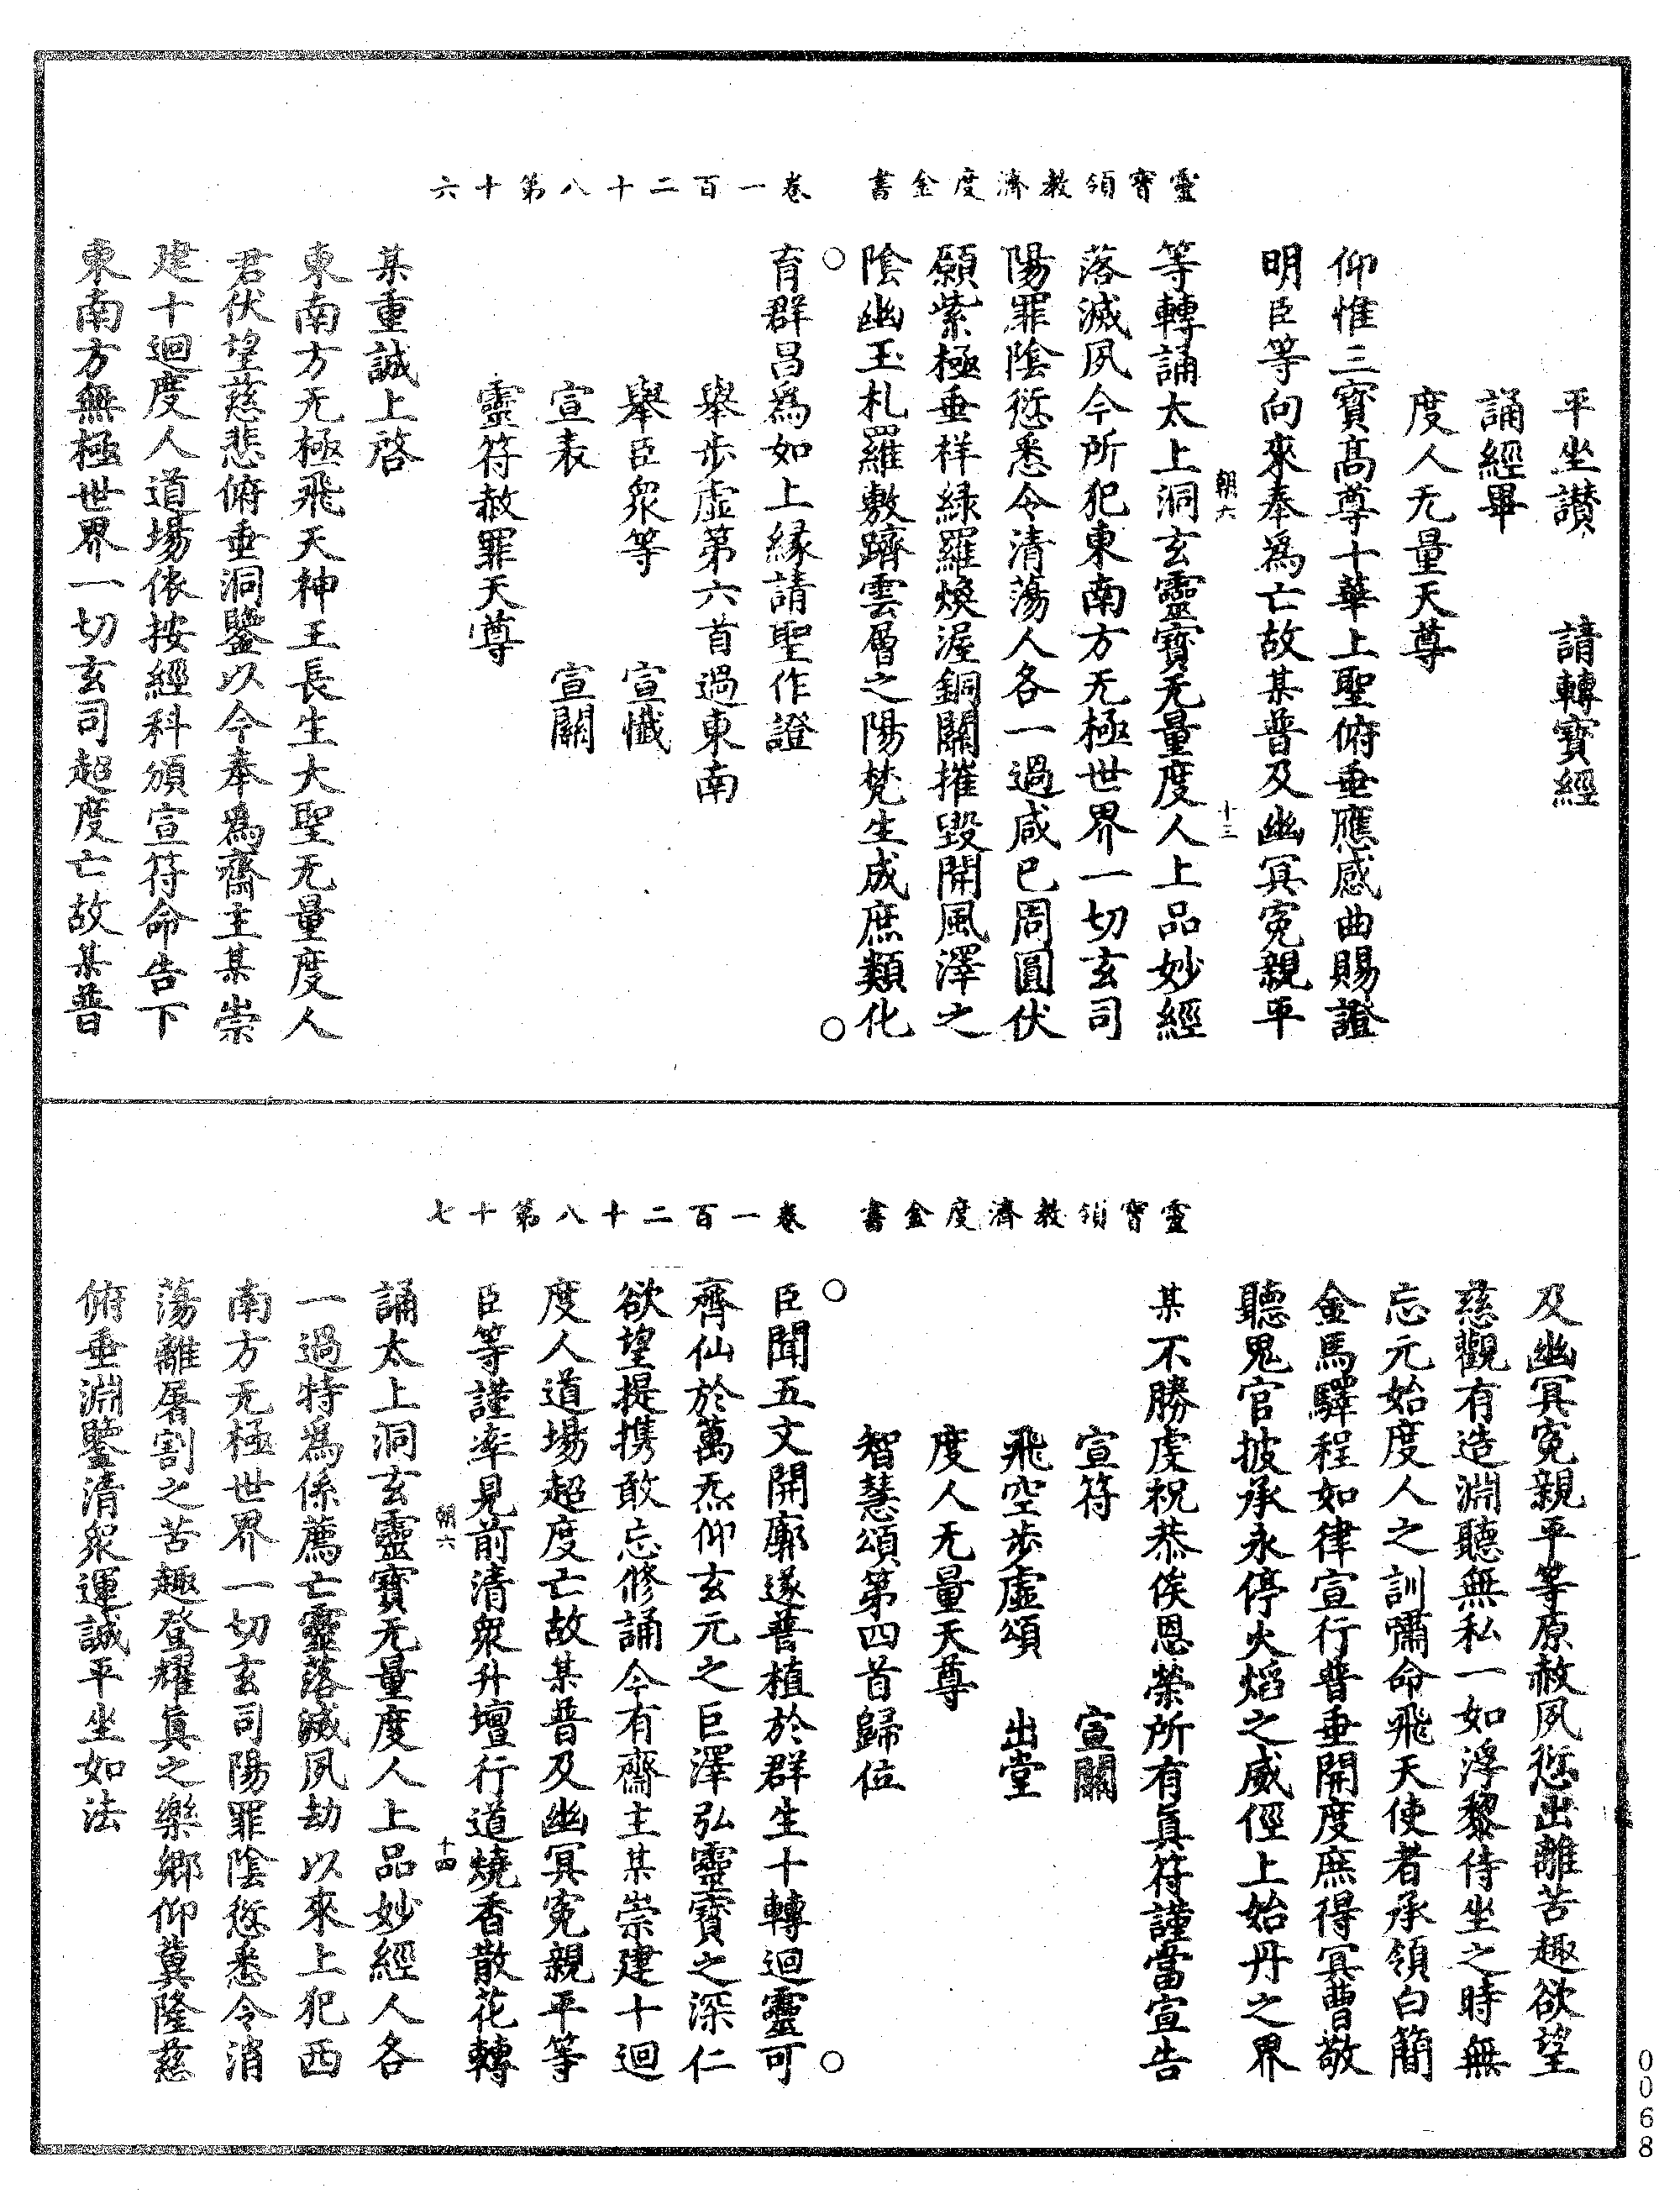 靈寶領教濟度金書　卷一百二十八第十六
平坐讃　請轉寶經
誦經畢
度人无量天尊
仰惟三寶高尊十華上聖俯垂應感曲賜證
明臣等向來奉爲亡故某普及幽冥寃親平
朝六　十三
等轉誦太上洞玄靈寶无量度人上品妙經
落滅夙今所犯東南方无極世界一切玄司
陽罪陰愆悉令清蕩人各一過咸已周圓伏
願紫極垂祥緑羅煥渥銅關摧毀開風澤之
陰幽玉札羅敷躋雲層之陽梵生成庶類化
育群昌爲如上縁請聖作證
舉步虛第六首過東南
舉臣衆等　宣懺
宣表　宣關
靈符赦罪天尊
某重誠上啓
東南方无極飛天神王長生大聖无量度人
君伏望慈悲俯垂洞鑒以今奉爲齋主某崇
建十迴度人道場依按經科頒宣符命告下
東南方無極世界一切玄司超度亡故某普
靈寶領教濟度金書　卷一百二十八第十七
及幽冥寃親平等原赦夙愆出離苦趣欲望
慈觀有造淵聽無私一如浮黎侍坐之時無
忘元始度人之訓嘯命飛天使者承領白簡
金馬驛程如律宣行普垂開度庶得冥曹敬
聽鬼官披承永停火熖之威徑上始丹之界
某不勝虔祝恭俟恩榮所有眞符謹當宣告
宣符　宣關
飛空步虛頌　出堂
度人无量天尊
智慧頌第四首歸位
臣聞五文開廓遂普植於群生十轉迴靈可
齊仙於萬炁仰玄元之巨澤弘靈寶之深仁
欲望提携敢忘修誦今有齋主某崇建十迴
度人道場超度亡故某普及幽冥寃親平等
臣等謹率見前清衆升壇行道燒香散花轉
朝六　十四
誦太上洞玄靈寶无量度人上品妙經人各
一過特爲係薦亡靈落滅夙劫以來上犯西
南方无極世界一切玄司陽罪陰愆悉令消
蕩離屠割之苦趣登耀眞之樂鄉仰冀隆慈
俯垂淵鑒清衆運誠平坐如法
0068